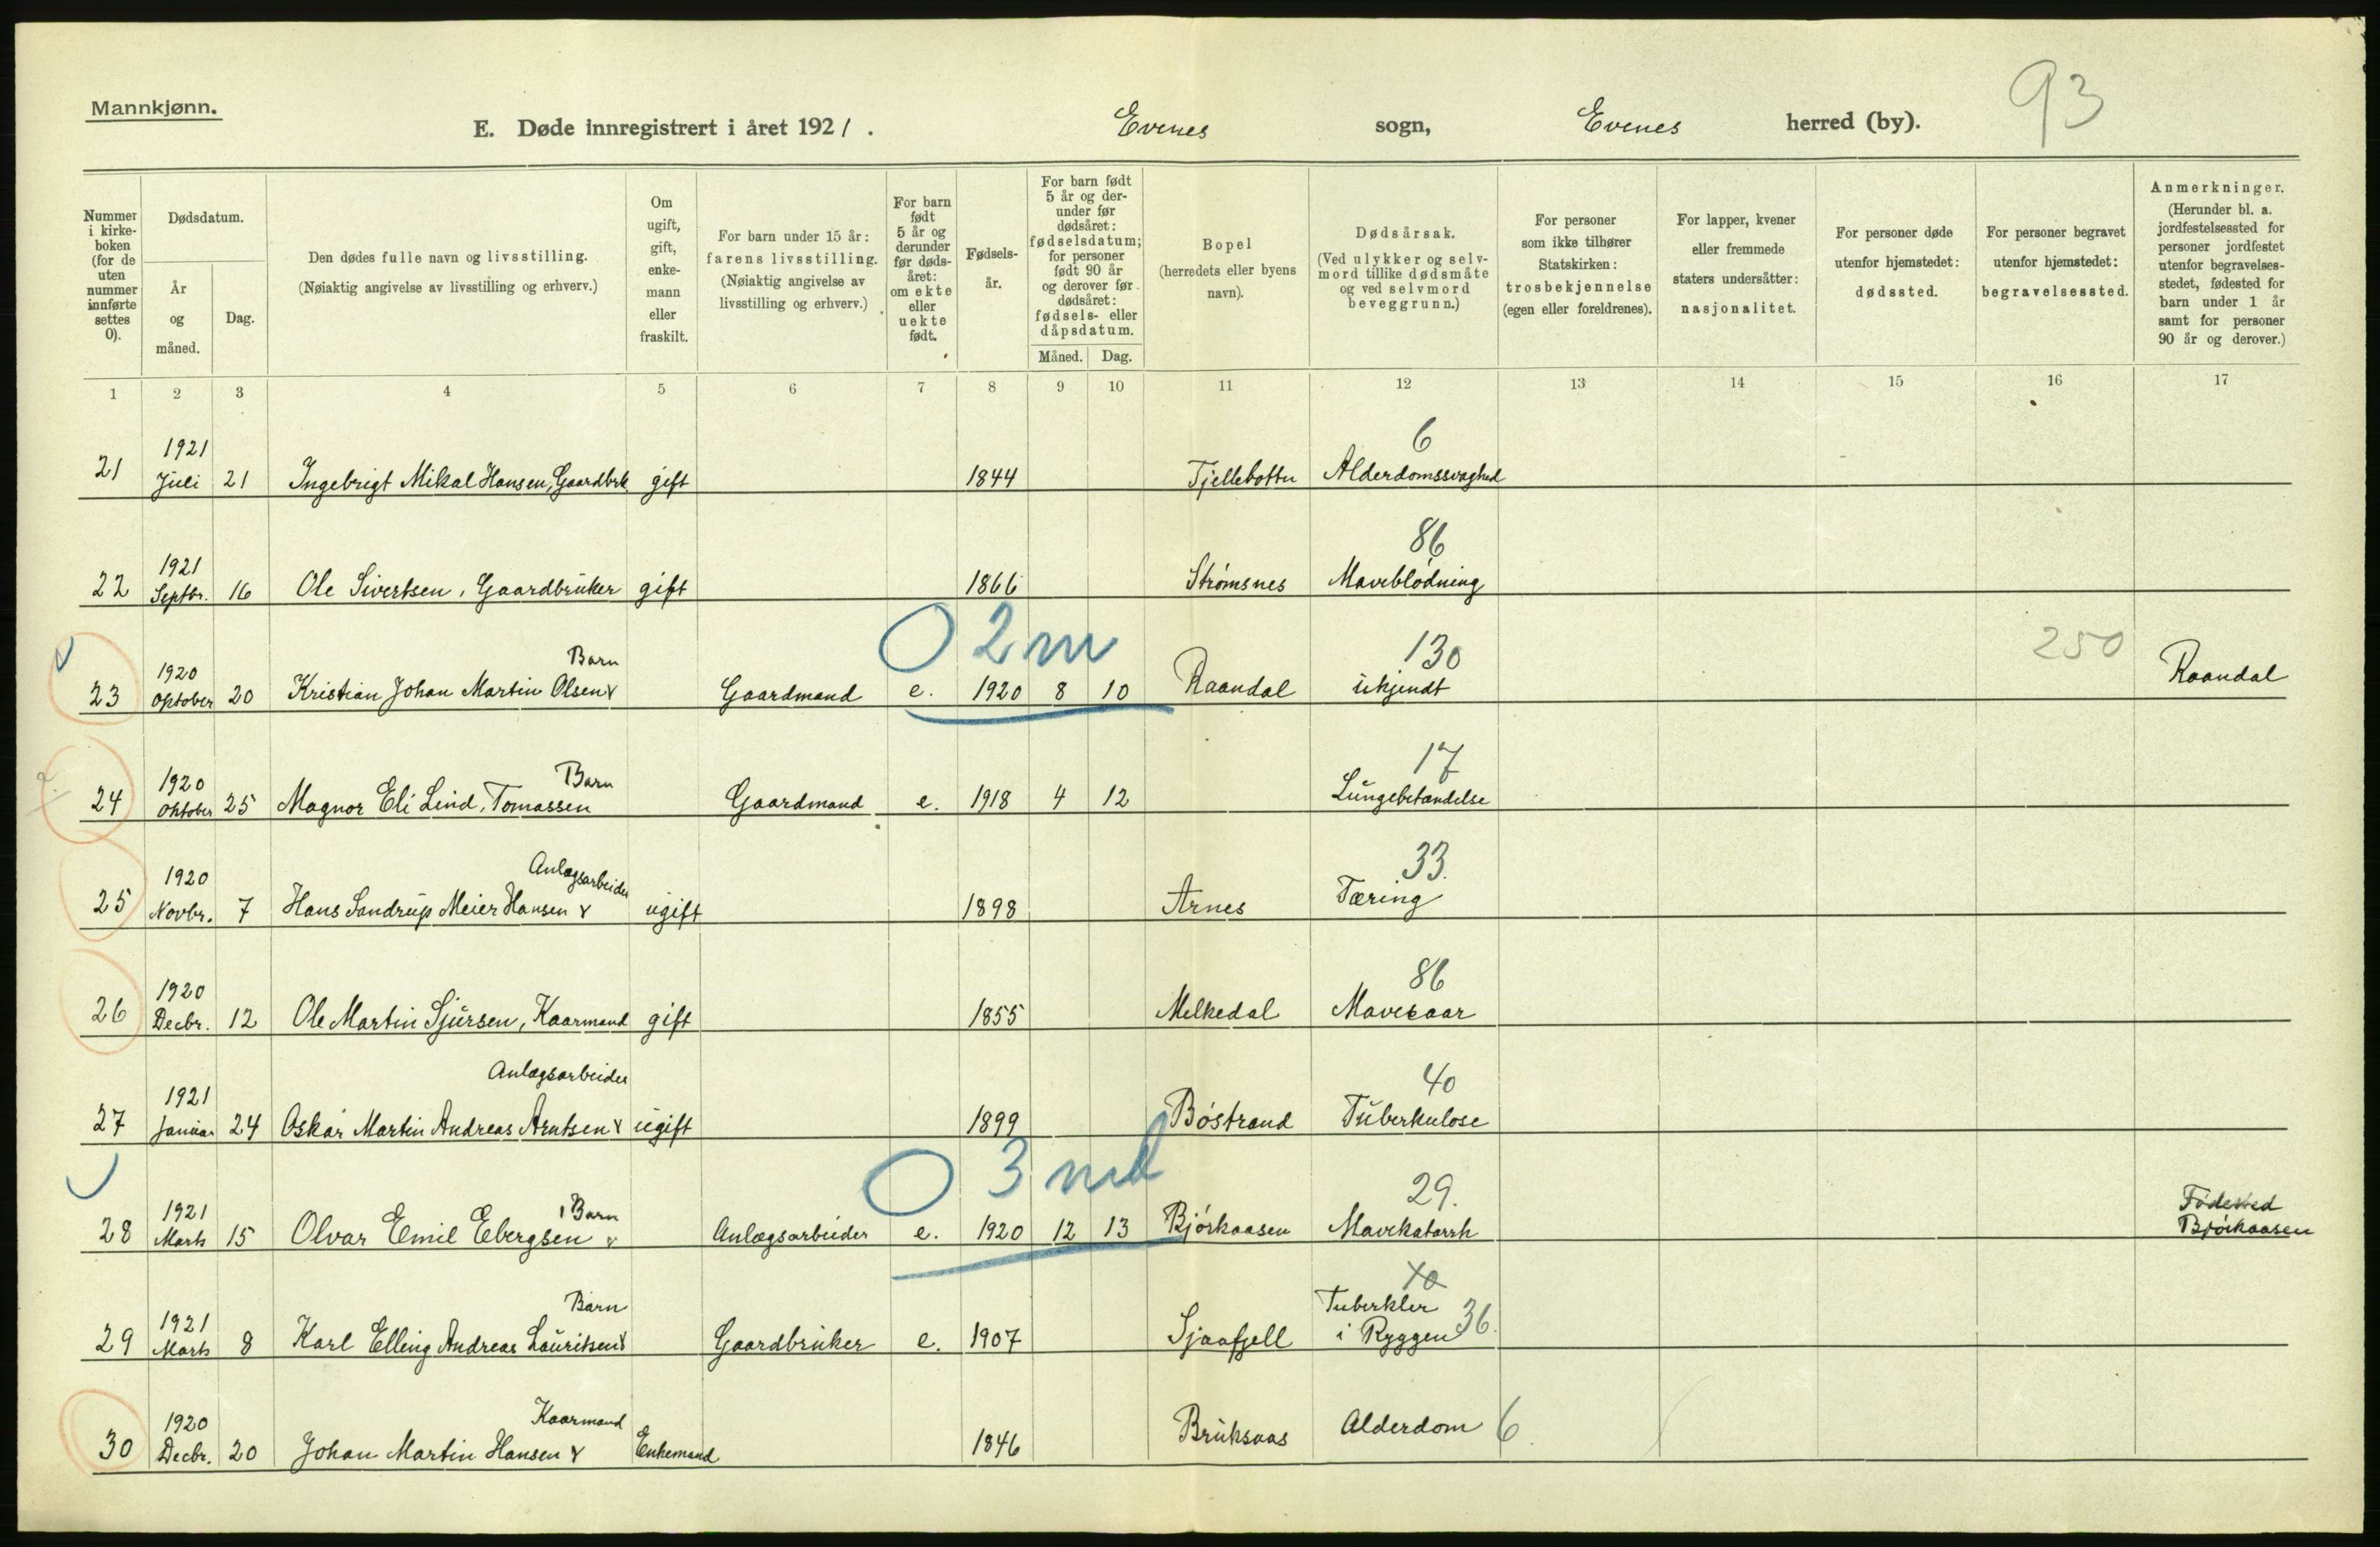 Mannkjønn.
E. Døde innregistrert i året 1921. Evenes sogn, Evenes herred (by). 93
Nummer i kirke-boken (for de uten nummer innførte settes 0).
Dødsdatum.
År og måned.
Dag.
Den dødes fulle navn og livsstilling.
(Nøiaktig angivelse av livsstilling og erhverv.)
Om ugift, gift, enke-mann eller fraskilt.
For barn under 15 år: farens livsstilling.
(Nøiaktig angivelse av livsstilling og erhverv.)
For barn født 5 år og derunder før døds-året: om ekte eller uekte født.
Fødsels-år.
For barn født 5 år og der-under før dødsåret: fødselsdatum; for personer født 90 år og derover før dødsåret: fødsels- eller dåpsdatum.
Måned. Dag.
Bopel (herredets eller byens navn).
Dødsårsak.
(Ved ulykker og selv-mord tillike dødsmåte og ved selvmord beveggrunn.)
For personer som ikke tilhører Statskirken: trosbekjennelse (egen eller foreldrenes).
For lapper, kvener eller fremmede staters undersåtter: nasjonalitet.
For personer døde utenfor hjemstedet: dødssted.
For personer begravet utenfor hjemstedet: begravelsessted.
Anmerkninger.
(Herunder bl. a. jordfestelsessted for personer jordfestet utenfor begravelses-stedet, fødested for barn under 1 år samt for personer 90 år og derover.)
1 2 3 4 5 6 7 8 9 10 11 12 13 14 15 16 17
1921 6
21 Juli 21 Ingebrigt Mikal Hansen, Gaardbrk. gift 1844 Tjellebotn Alderdomssvaghed
1921 86
22 Septbr. 16 Ole Sivertsen, Gaardbruker gift 1866 Strømsnes Maveblødning
0 2 m
1920 Barn 130 250
23 Oktober 20 Kristian Johan Martin Olsen Gaardmand e. 1920 8 10 Raandal ukjendt Raandal
1920 Barn 17
24 Oktober 25 Magnor Eli Lind, Tomassen Gaardmand e. 1918 4 12 Lungebetændelse
1920 Anlægsarbeider 33.
25 Novbr. 7 Hans Sandrup Meier Hansen ugift 1898 Arnes Tæring
1920 86
26 Decbr. 12 Ole Martin Sjursen, Kaarmand gift 1855 Melkedal Mavesaar
1921 Anlægsarbeider 40
27 Januar 24 Oskar Martin Andreas Arntsen ugift 1899 Bøstrand Tuberkulose
0 3 md
1921 Barn 29. Fødested
28 Marts 15 Olvar Emil Ebergsen Anlægsarbeider e. 1920 12 13 Bjørkaasen Mavekatarrh Bjørkaasen
1921 Barn Tuberkler 36.
29 Marts 8 Karl Elling Andreas Lauritsen Gaardbruker e. 1907 Sjaafjell i Ryggen
1920 Kaarmand
30 Decbr. 20 Johan Martin Hansen Enkemand 1846 Bruksaas Alderdom 6.